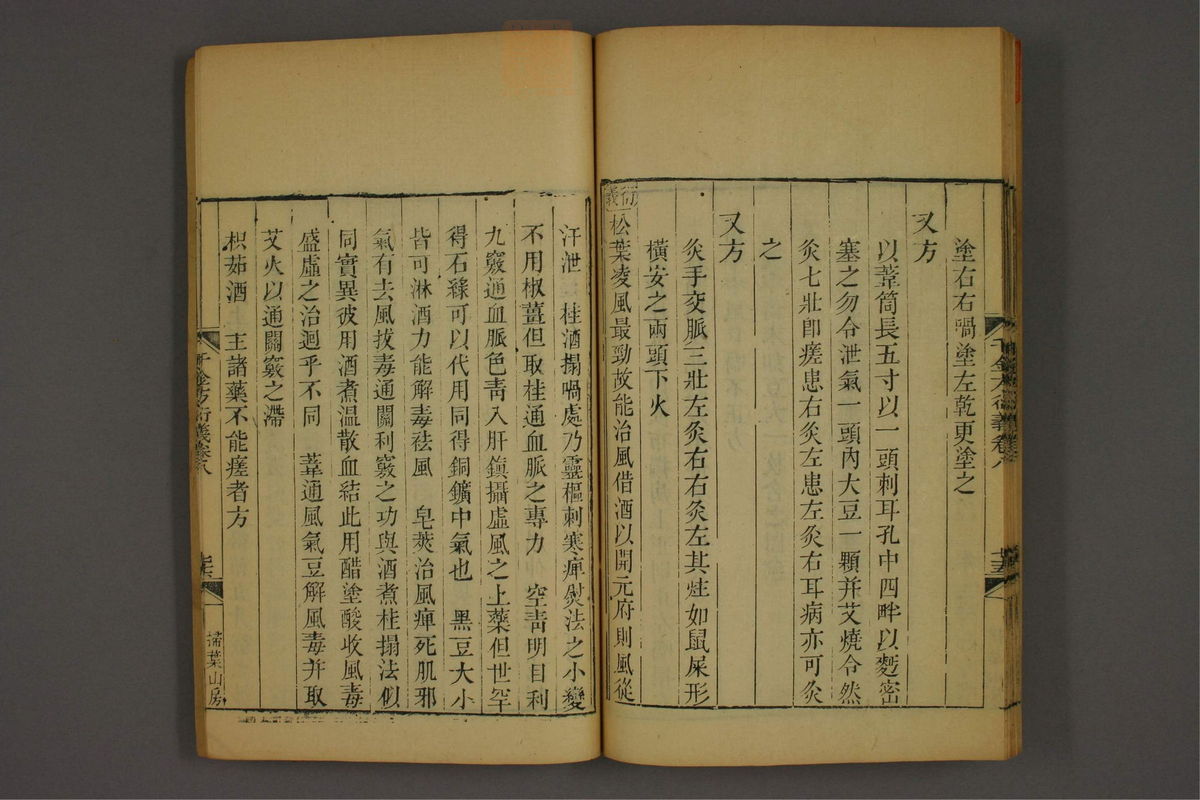 塗右右喎塗左乾更塗之
又方
以葦筒長五寸以一頭刺耳孔中四畔以麪密
塞之勿令泄氣一頭內大豆一顆并艾燒令然
灸七壯卽瘥患右灸左患左灸右耳病亦可灸
之
又方
灸手交脈三壯左灸右右灸左其炷如鼠屎形
橫安之兩頭下火
衍義
松葉凌風最勁故能治風借酒以開元府則風從
汗泄 桂酒搨喎處乃靈樞刺寒痺熨法之小變
不用椒薑但取桂通血脈之專力 空靑明目利
九竅通血脈色靑入肝鎭攝虛風之上藥但世罕
得石綠可以代用同得銅鑛中氣也 黑豆大小
皆可淋酒力能解毒祛風 皂莢治風痺死肌邪
氣有去風拔毒通關利竅之功與酒煮桂搨法似
同實異彼用酒煮溫散血結此用醋塗酸收風毒
盛虛之治迥乎不同 葦通風氣豆解風毒并取
艾火以通關竅之滯
枳茹酒 主諸藥不能瘥者方
千金方衍義卷八
掃葉山房